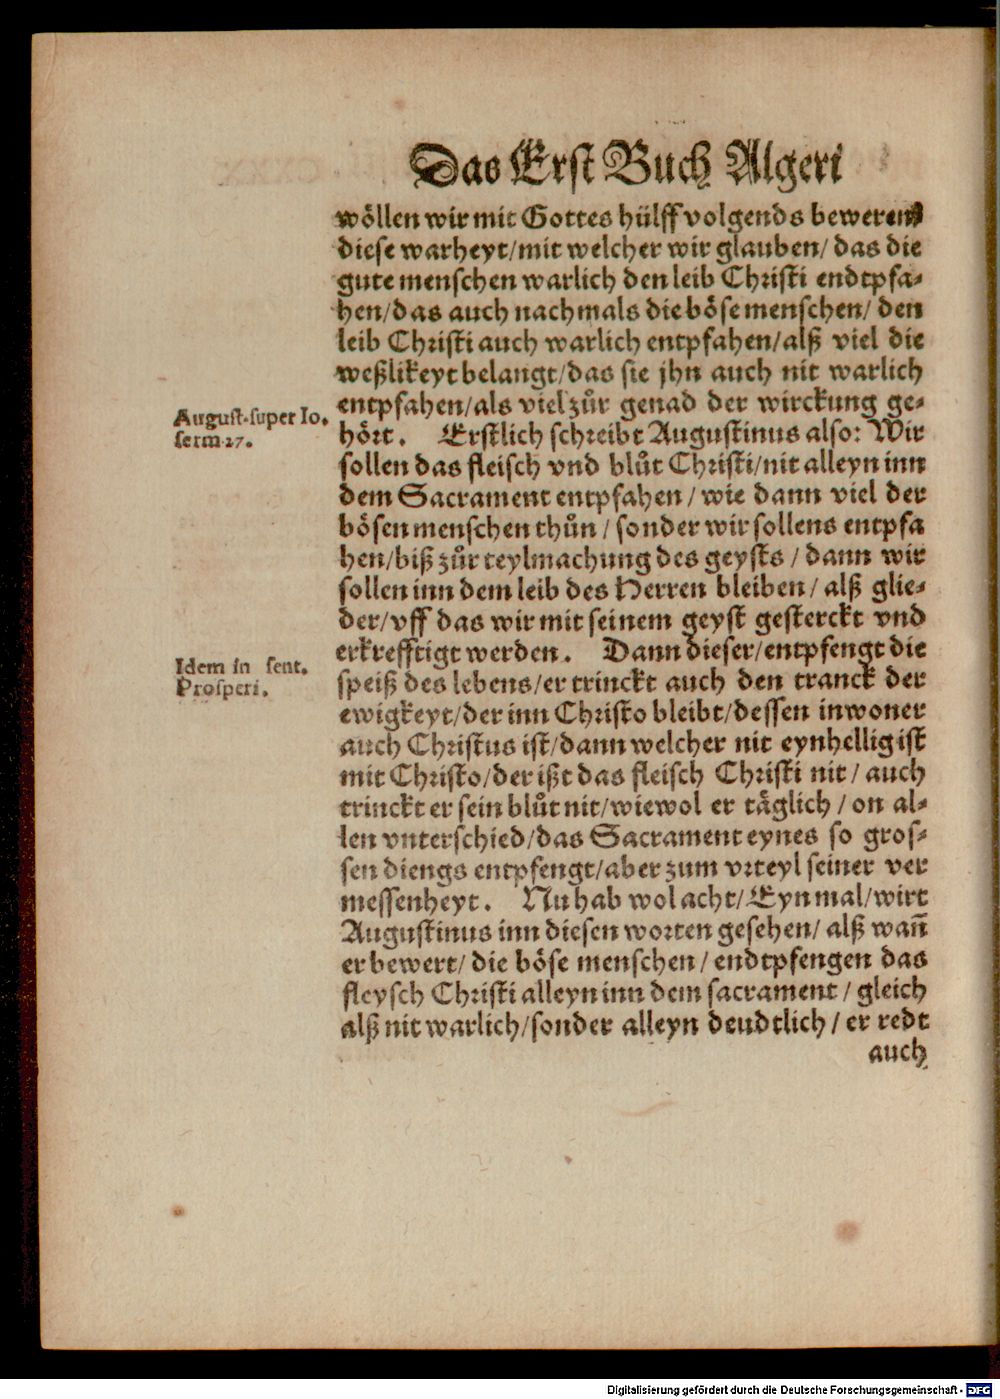 Das Erst Buch Algeri
wöllen wir mit Gottes hülff volgends beweren
diese warheyt/mit welcher wir glauben/ das die
gute menschen warlich den leib Christi endtpfa-
hen/das auch nachmals die böse menschen/ den
leib Christi auch warlich entpfahen/alß viel die
weßlikeyt belangt/das sie jhn auch nit warlich
August. super Io.
serm 27.
entpfahen/als viel zůr genad der wirckung ge-
hört. Erstlich schreibt Augustinus also: Wir
sollen das fleisch vnd blůt Christi/nit alleyn inn
dem Sacrament entpfahen/ wie dann viel der
bösen menschen thůn / sonder wir sollens entpfa
hen/biß zůr teylmachung des geysts / dann wir
sollen inn dem leib des Herren bleiben/ alß glie-
der/vff das wir mit seinem geyst gesterckt vnd
erkrefftigt werden. Dann dieser/entpfengt die
Idem in sent.
Prosperi.
speiß des lebens/er trinckt auch den tranck der
ewigkeyt/der inn Christo bleibt/dessen inwoner
auch Christus ist/dann welcher nit eynhellig ist
mit Christo/der ißt das fleisch Christi nit/ auch
trinckt er sein blůt nit/wiewol er täglich / on al-
len vnterschied/das Sacrament eynes so gros-
sen diengs entpfengt/aber zum vrteyl seiner ver
messenheyt. Nu hab wol acht/ Eyn mal/wirt
Augustinus inn diesen worten gesehen/ alß wañ
er bewert/ die böse menschen/ endtpfengen das
fleysch Christi alleyn inn dem sacrament / gleich
alß nit warlich/sonder alleyn deudtlich / er redt
auch
Digitalisierung gefördert durch die Deutsche Forschungsgemeinschaft - DFG